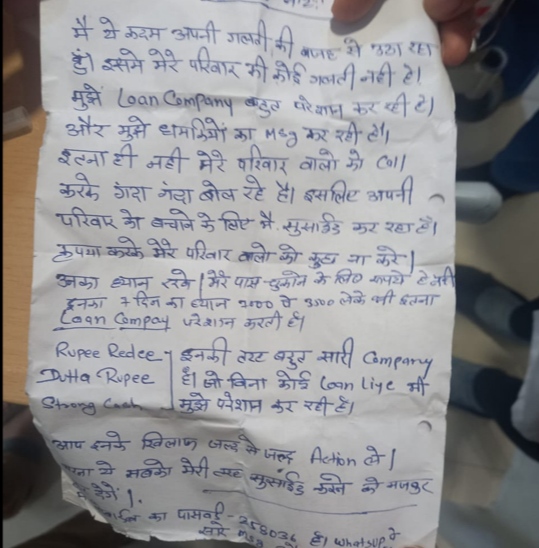 मैं ये कदम अपनी गलती की वजह से उठा रहा
हूं। इसमें मेरे परिवार की कोई गलती नहीं है।
मुझे Loan Company बहुत परेशान कर रही है।
और मुझे धमकियों का Msg कर रही है।
इतना ही नहीं मेरे परिवार वालो को Call
करके गंदा गंदा बोल रहे है। इसलिए अपनी
परिवार को बचाने के लिए मैं सुसाईड कर रहा हूँ।
कृपया करके मेरे परिवार वालो को कुछ ना करे।
उनका ध्यान रखे। मेरे पास चुकाने के लिए रूपये है नहीं
इनका 7 दिन का ब्याज 2000 पे 3500 लेके भी इतना
Loan Company परेशान करती है।
Rupee Redee इनकी तरह बहुत सारी Company
Dutta Rupee है। जो बिना कोई Loan Liye भी
Strong Cash मुझे परेशान कर रही है।
आप इनके खिलाफ जल्द से जल्द Action ले।
ये सबको मेरी तरह सुसाईड करने को मजबूर
का पासवर्ड - 258036 है। Whatsup पे
सारे Msg